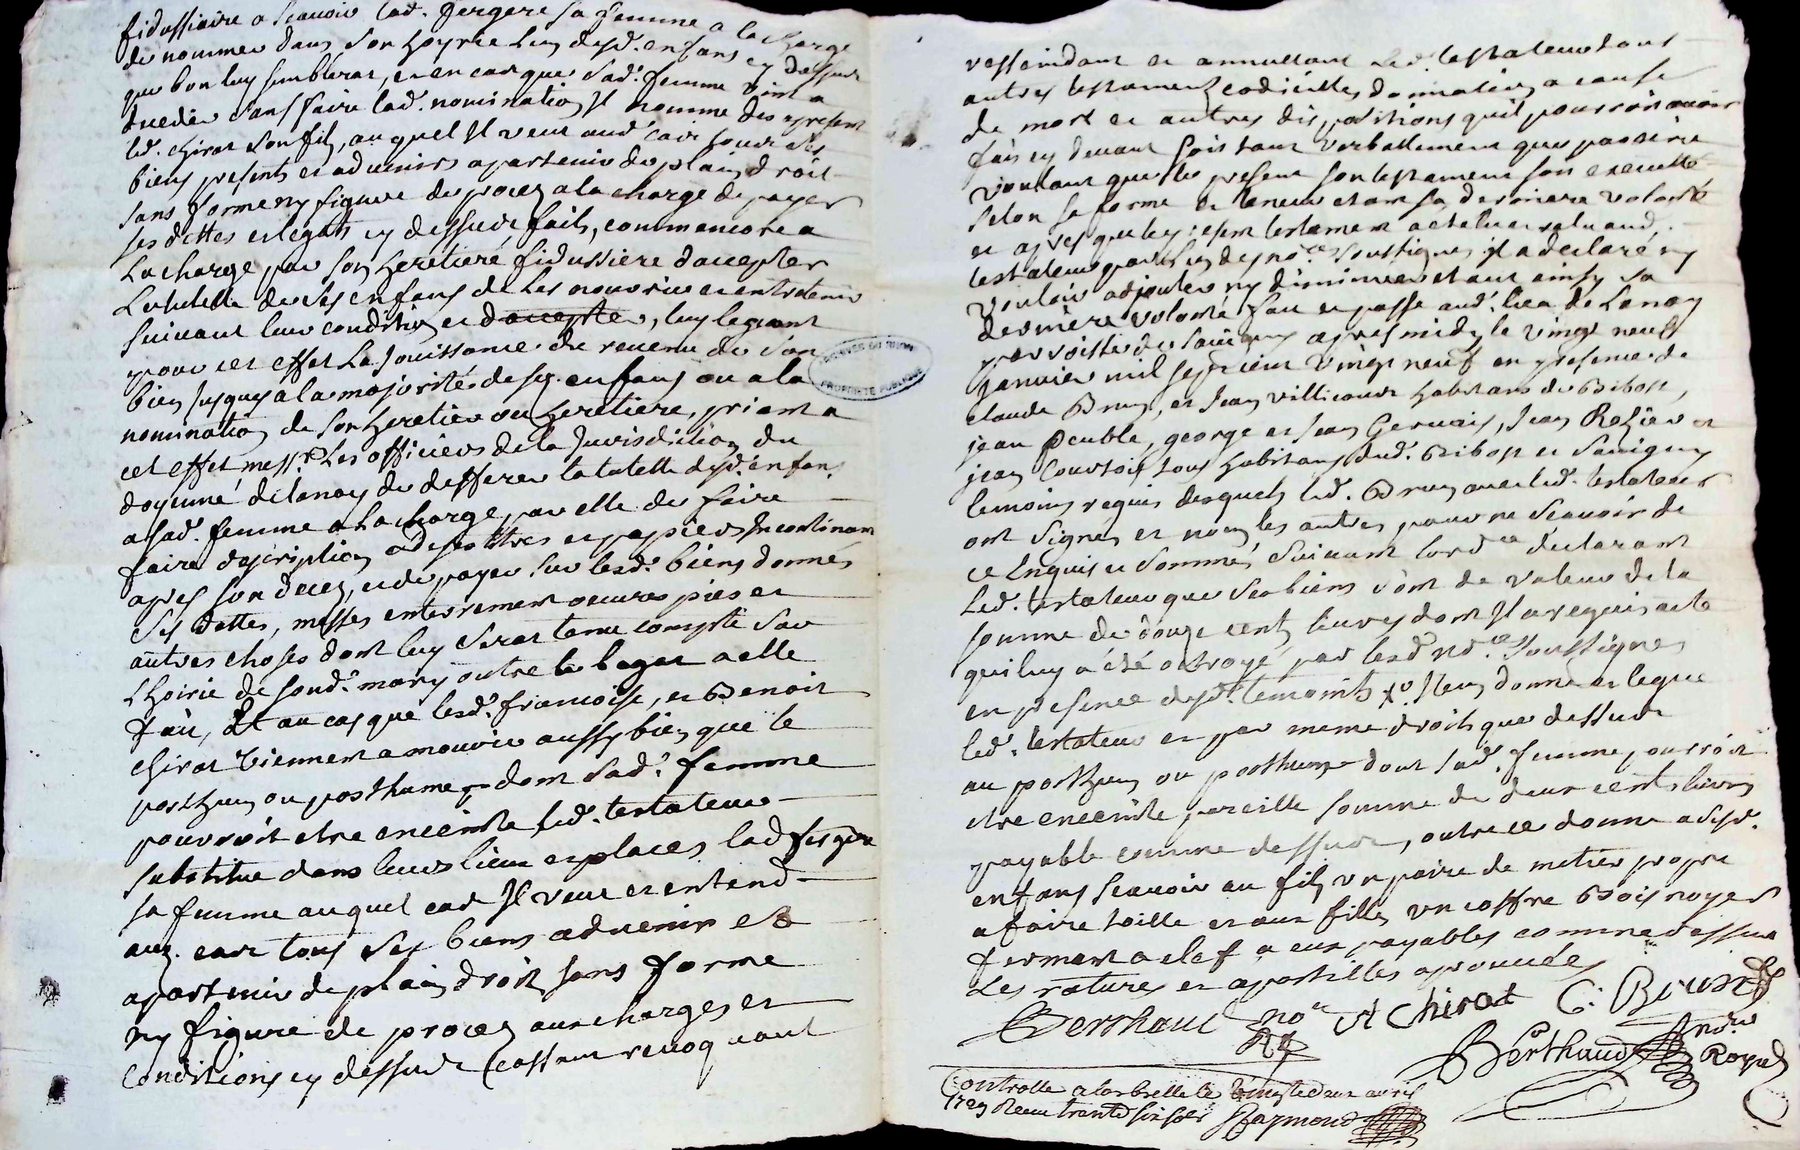 fidussiaire a scavoir lad. fergere sa femme a la charge
de nommer dans son hoyrie lun desd. enfans cy dessus
que bon luy semblerat, et en cas que sad. femme vint a
deceder sans faire lad. nomination Il nomme des a present
led. chirat son fils, auquel Il veut aud. cas tous ses
biens presents et advenirs apartenir de plain droit
sans forme ny figure de proces a la charge de payer
ses dettes et legats cy dessus faits, comme encore a
La charge par son heretiere fidussiere daccepter
La tutelle de ses enfans de les nourrir et entretenir
suivant leur condition et daccepter, luy leguant
pour cet effet La Jouissance du revenu de son
bien jusques a la majorité de ses enfans ou a la
nomination de son heretier ou heretiere, priant a
cet effet mess.rs Les officiers de la Jurisdiction du
doyenné de lanay de defferer la tutelle desd. enfans
a sad. femme a la charge par elle de faire
faire description de ses titres et papiers Incontinant
apres son deces, et de payer sur lesd. biens donnés
ses dettes, messes enterrement oeuvres pies et
autres choses dont luy serat tenu compte sur
Lhoirie de sond. mary outre le legat a elle
fait, Et au cas que lesd. francoise, et Benoit
chirat viennent a mourir aussy bien que le
posthum ou posthume dont sad. femme
pourroit etre enceinte led. testateur
substitue dans leurs lieux et places lad. fergere
sa femme auquel cas Il veut et entend
aud. cas tous ses biens advenir et
apartenir de plain droit sans forme
ny figure de proces aux charges et
conditions cy dessus cassant revoquant
ressindant et annullant led. testateur tous
autres testaments codicilles donnations a cause
de mort et autres dispositions quil pourroit avoir
fais cy devant soit tant verballement que par écrit
voulant que le present son testament soit executté
selon sa forme et teneur etant sa derniere volonté
et apres que le present testament a eté lu et relu aud.
testateur par lun desd. no.res soussignes il a declaré ny
vouloir adjouter ny diminuer etant ainsy sa
derniere volonté fait et passé aud. lieu de Lanay
parroisse de Savigny apres midy le vingt neuf
janvier mil sept cent vingt neuf en presence de
claude Brun, et Jean villicourt habitans de Bibost,
jean Peuble, george et Jean Gervais, Jean Rozier et
jean Courtois tous habitans dud. Bibost et Savigny
temoins requis desquels led. Brun avec led. testateur
ont signés et non les autres pour ne scavoir de
ce Enquis et sommés suivant lord.ce declarant
Led. testateur que ses biens sont de valeur de la
somme de douze cents livres dont Il a requis acte
qui luy a été octroyé par lesd. no.res soussignes
en presence desd. temoins Item donne et legue
led. testateur et par meme droits que dessus
au posthum ou posthume dont sad. femme pourroit
etre enceinte pareille somme de deux cents livres
payable comme dessus, outre ce donne a sesd.
enfans scavoir au fils un paire de metier propre
a faire toille et aux filles un coffre Bois noyer
fermant a clef a eux payables comme dessus
Les ratures et apostilles aprouvées
Berthaud no.re A Chirat C: Brun
Rl Berthaud no.re
Royal
Controllé a larbrelle le vingt deux avril
1729 Receu trente six sols Raymond
PROPRIETE PUBLIQUE